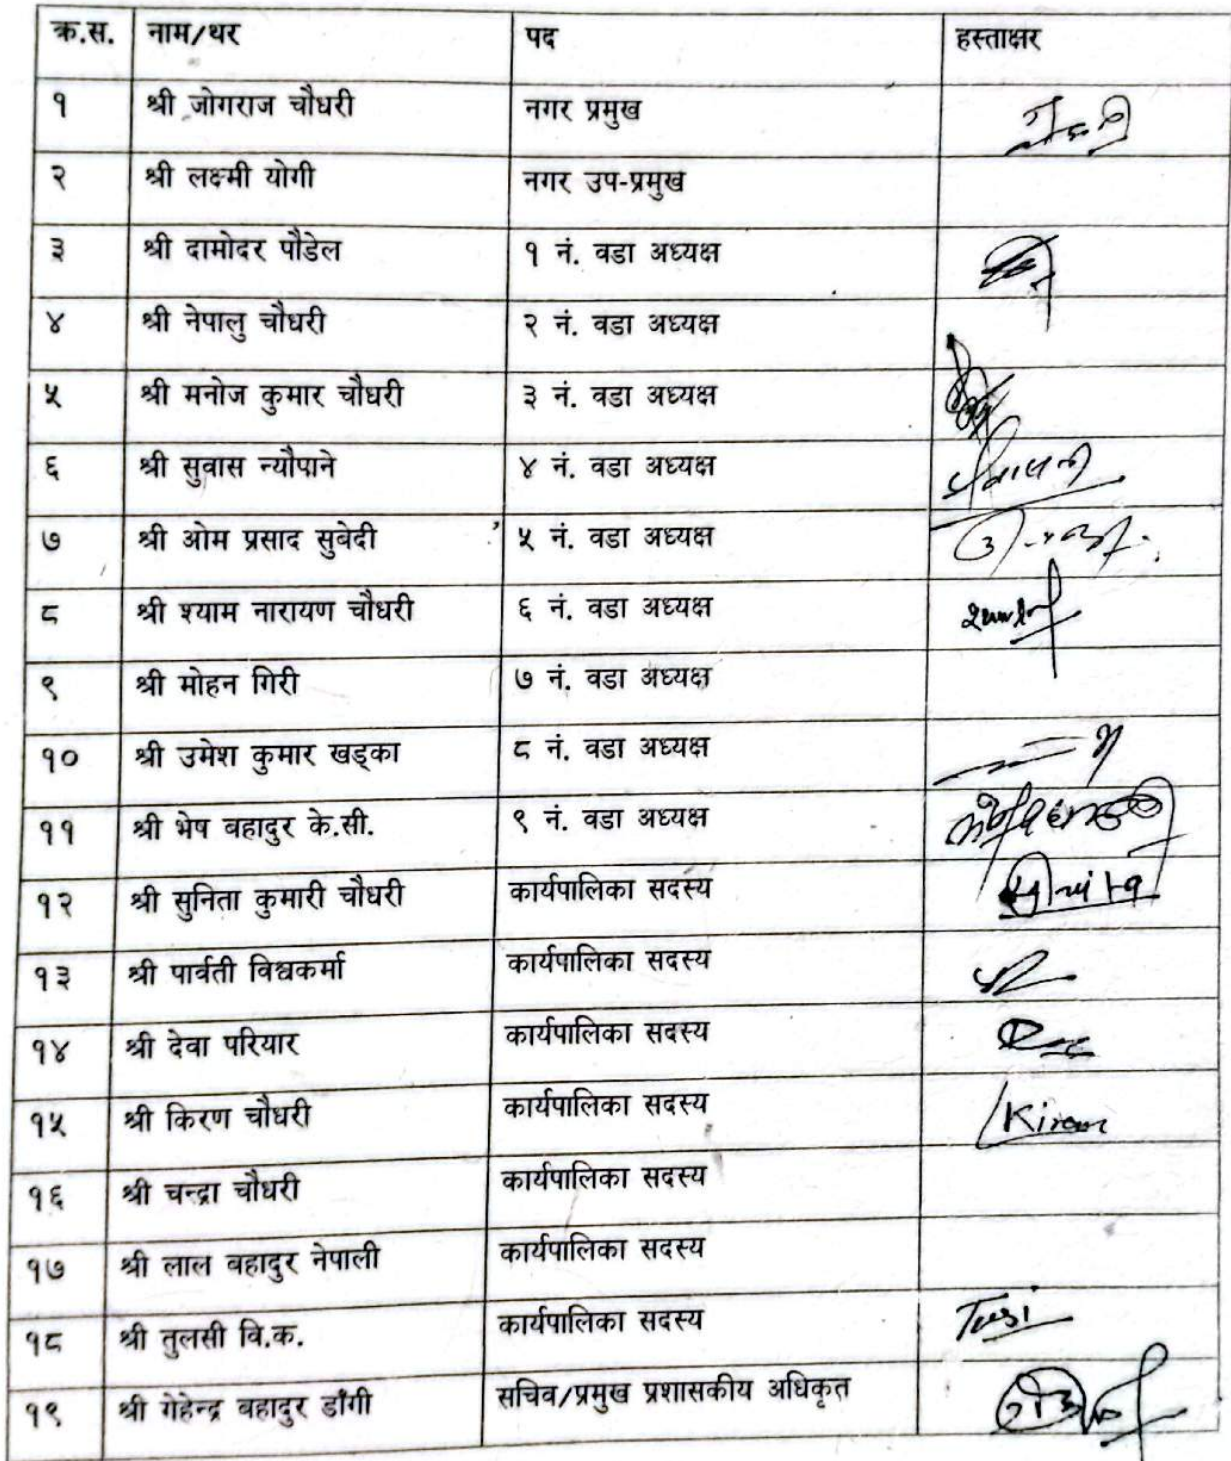 क्र.स. नाम/थर पद हस्ताक्षर
१ श्री जोगराज चौधरी नगर प्रमुख
२ श्री लक्ष्मी योगी नगर उप-प्रमुख
३ श्री दामोदर पौडेल १ नं. वडा अध्यक्ष
४ श्री नेपालु चौधरी २ नं. वडा अध्यक्ष
५ श्री मनोज कुमार चौधरी ३ नं. वडा अध्यक्ष
६ श्री सुवास न्यौपाने ४ नं. वडा अध्यक्ष
७ श्री ओम प्रसाद सुबेदी ५ नं. वडा अध्यक्ष
८ श्री श्याम नारायण चौधरी ६ नं. वडा अध्यक्ष
९ श्री मोहन गिरी ७ नं. वडा अध्यक्ष
१० श्री उमेश कुमार खड्का ८ नं. वडा अध्यक्ष
११ श्री भेष बहादुर के.सी. ९ नं. वडा अध्यक्ष
१२ श्री सुनिता कुमारी चौधरी कार्यपालिका सदस्य
१३ श्री पार्वती विश्वकर्मा कार्यपालिका सदस्य
१४ श्री देवा परियार कार्यपालिका सदस्य
१५ श्री किरण चौधरी कार्यपालिका सदस्य Kiran
१६ श्री चन्द्रा चौधरी कार्यपालिका सदस्य
१७ श्री लाल बहादुर नेपाली कार्यपालिका सदस्य
१८ श्री तुलसी वि.क. कार्यपालिका सदस्य
१९ श्री गेहेन्द्र बहादुर डाँगी सचिव/प्रमुख प्रशासकीय अधिकृत